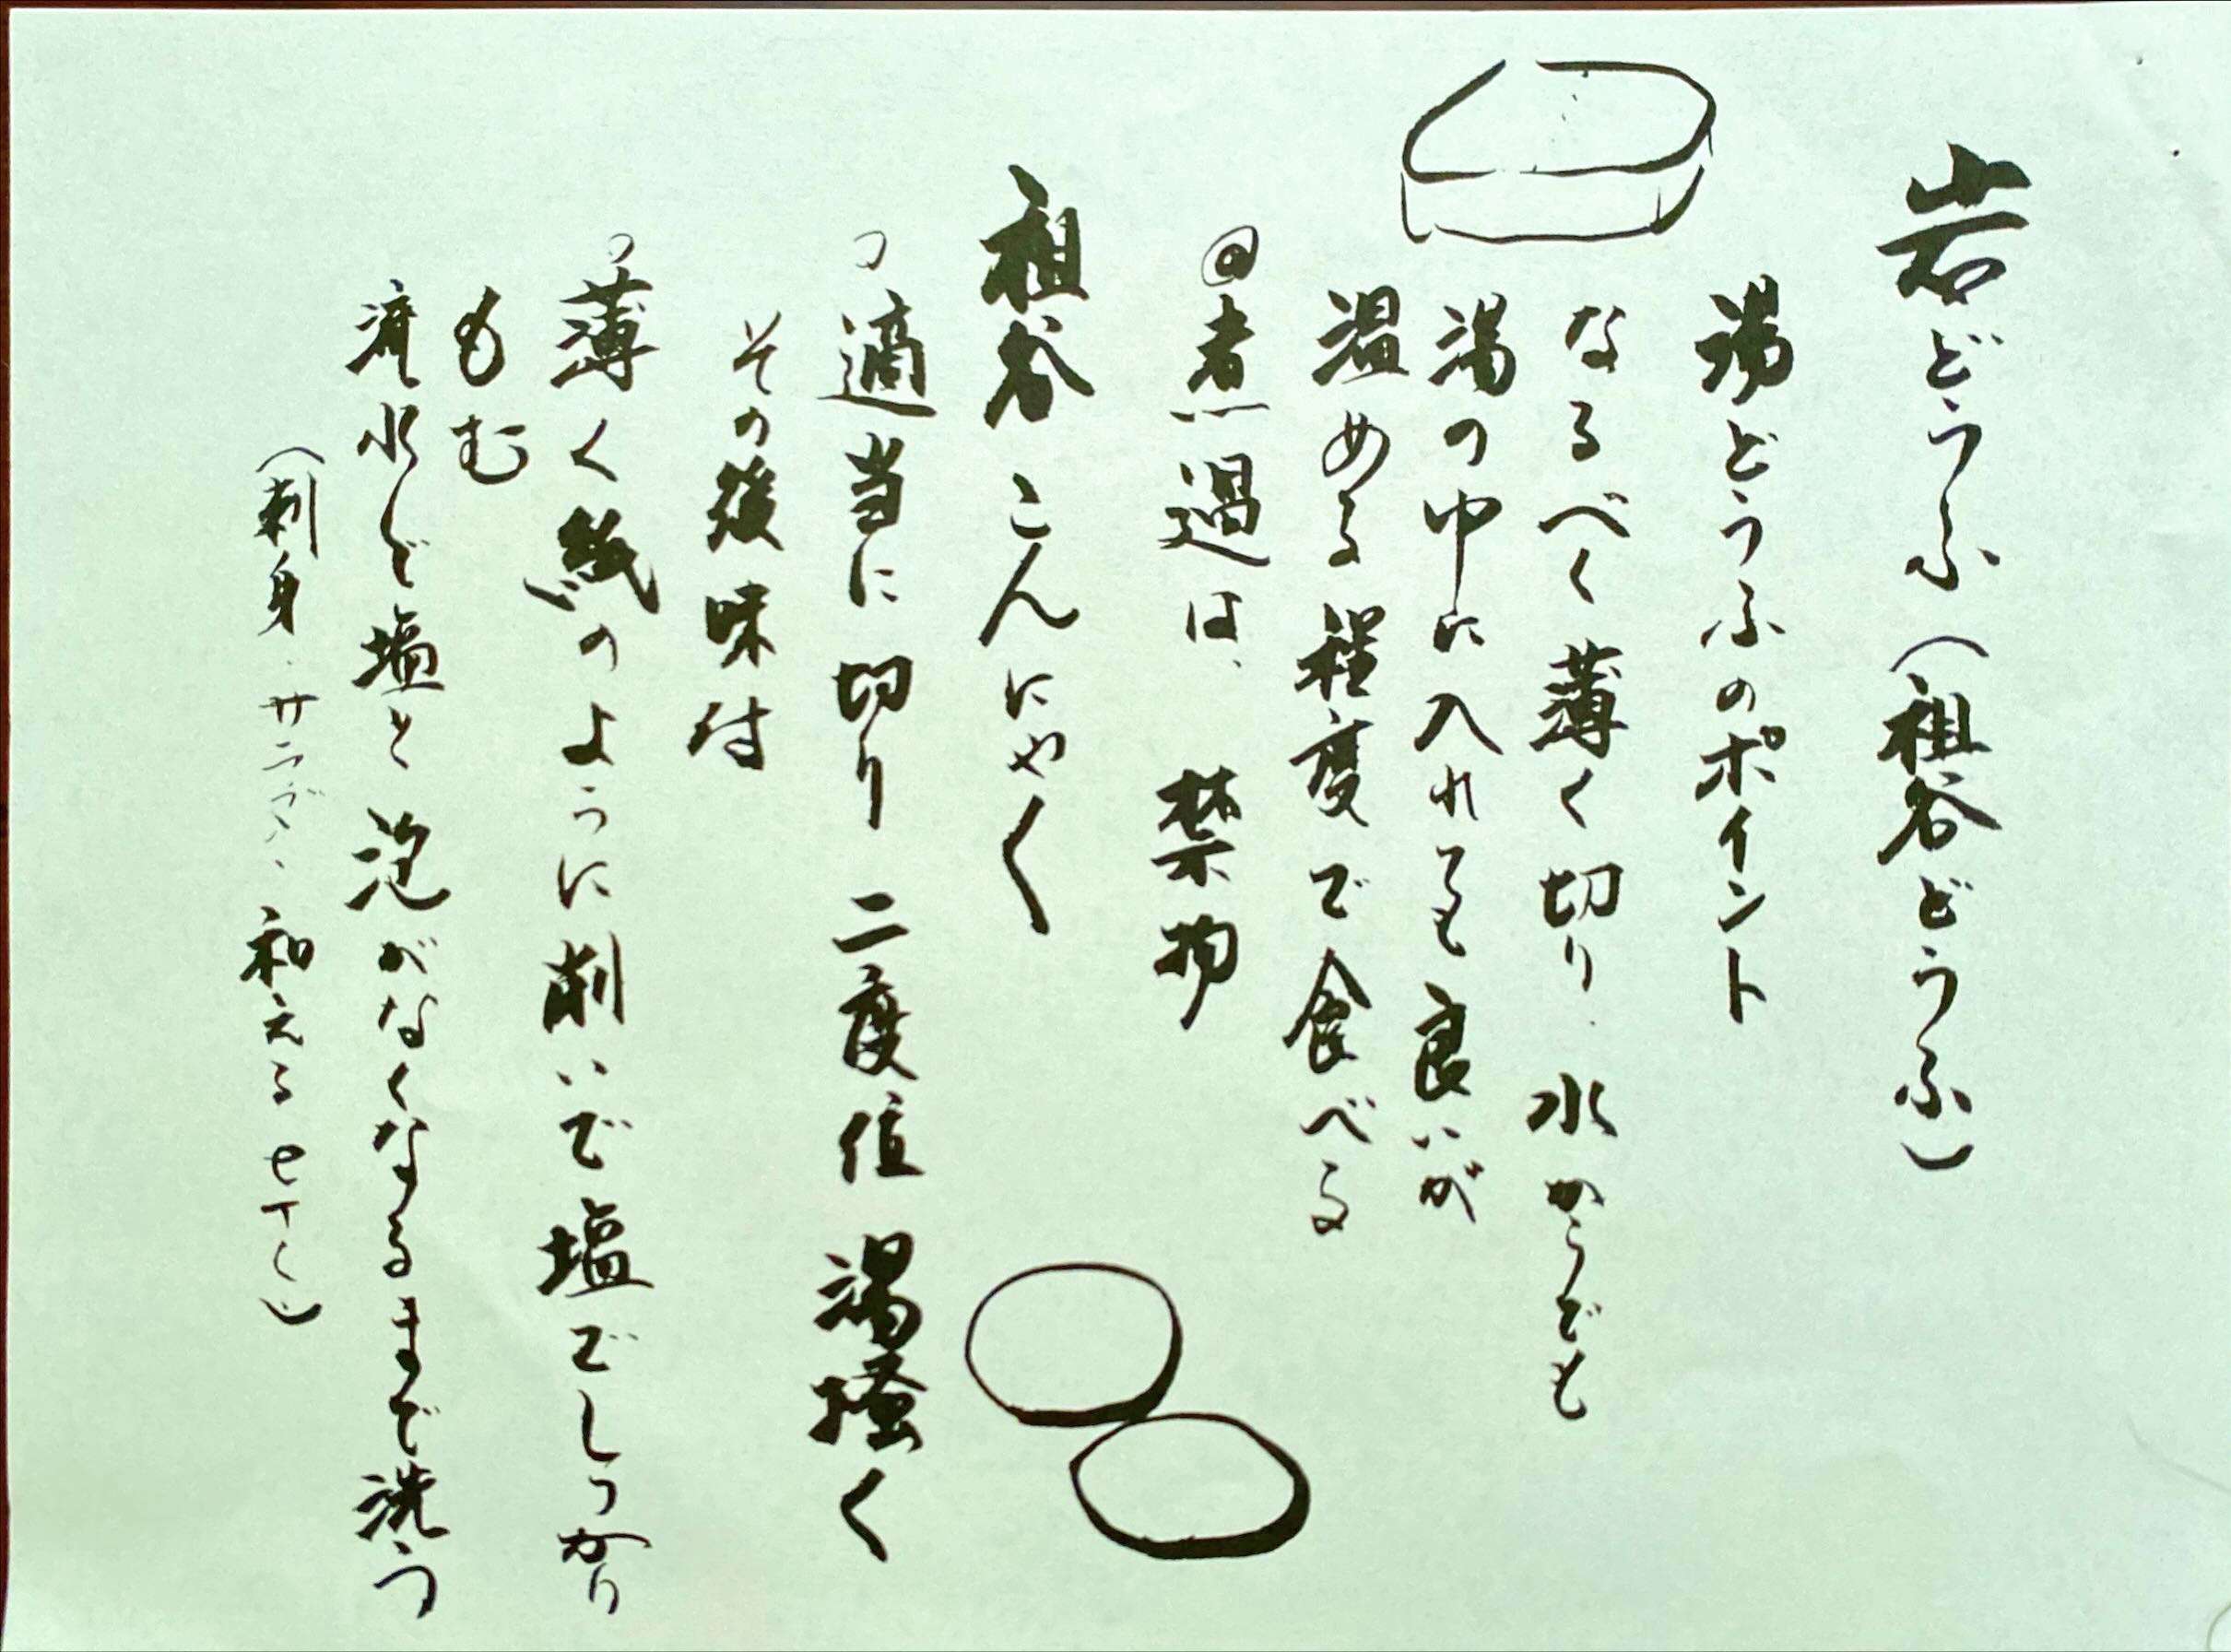 岩どうふ(祖谷どうふ)
湯どうふのポイント
なるべく薄く切り、水からでも
湯の中に入れても良いが
温める程度で食べる
◎煮過は、禁物
祖谷こんにゃく
○適当に切り二度位湯掻く
その後味付
○薄く紙のように削いで塩でしっかり
もむ
流水で塩と泡がなくなるまで洗う
(刺身、サラダ、和えるetc)